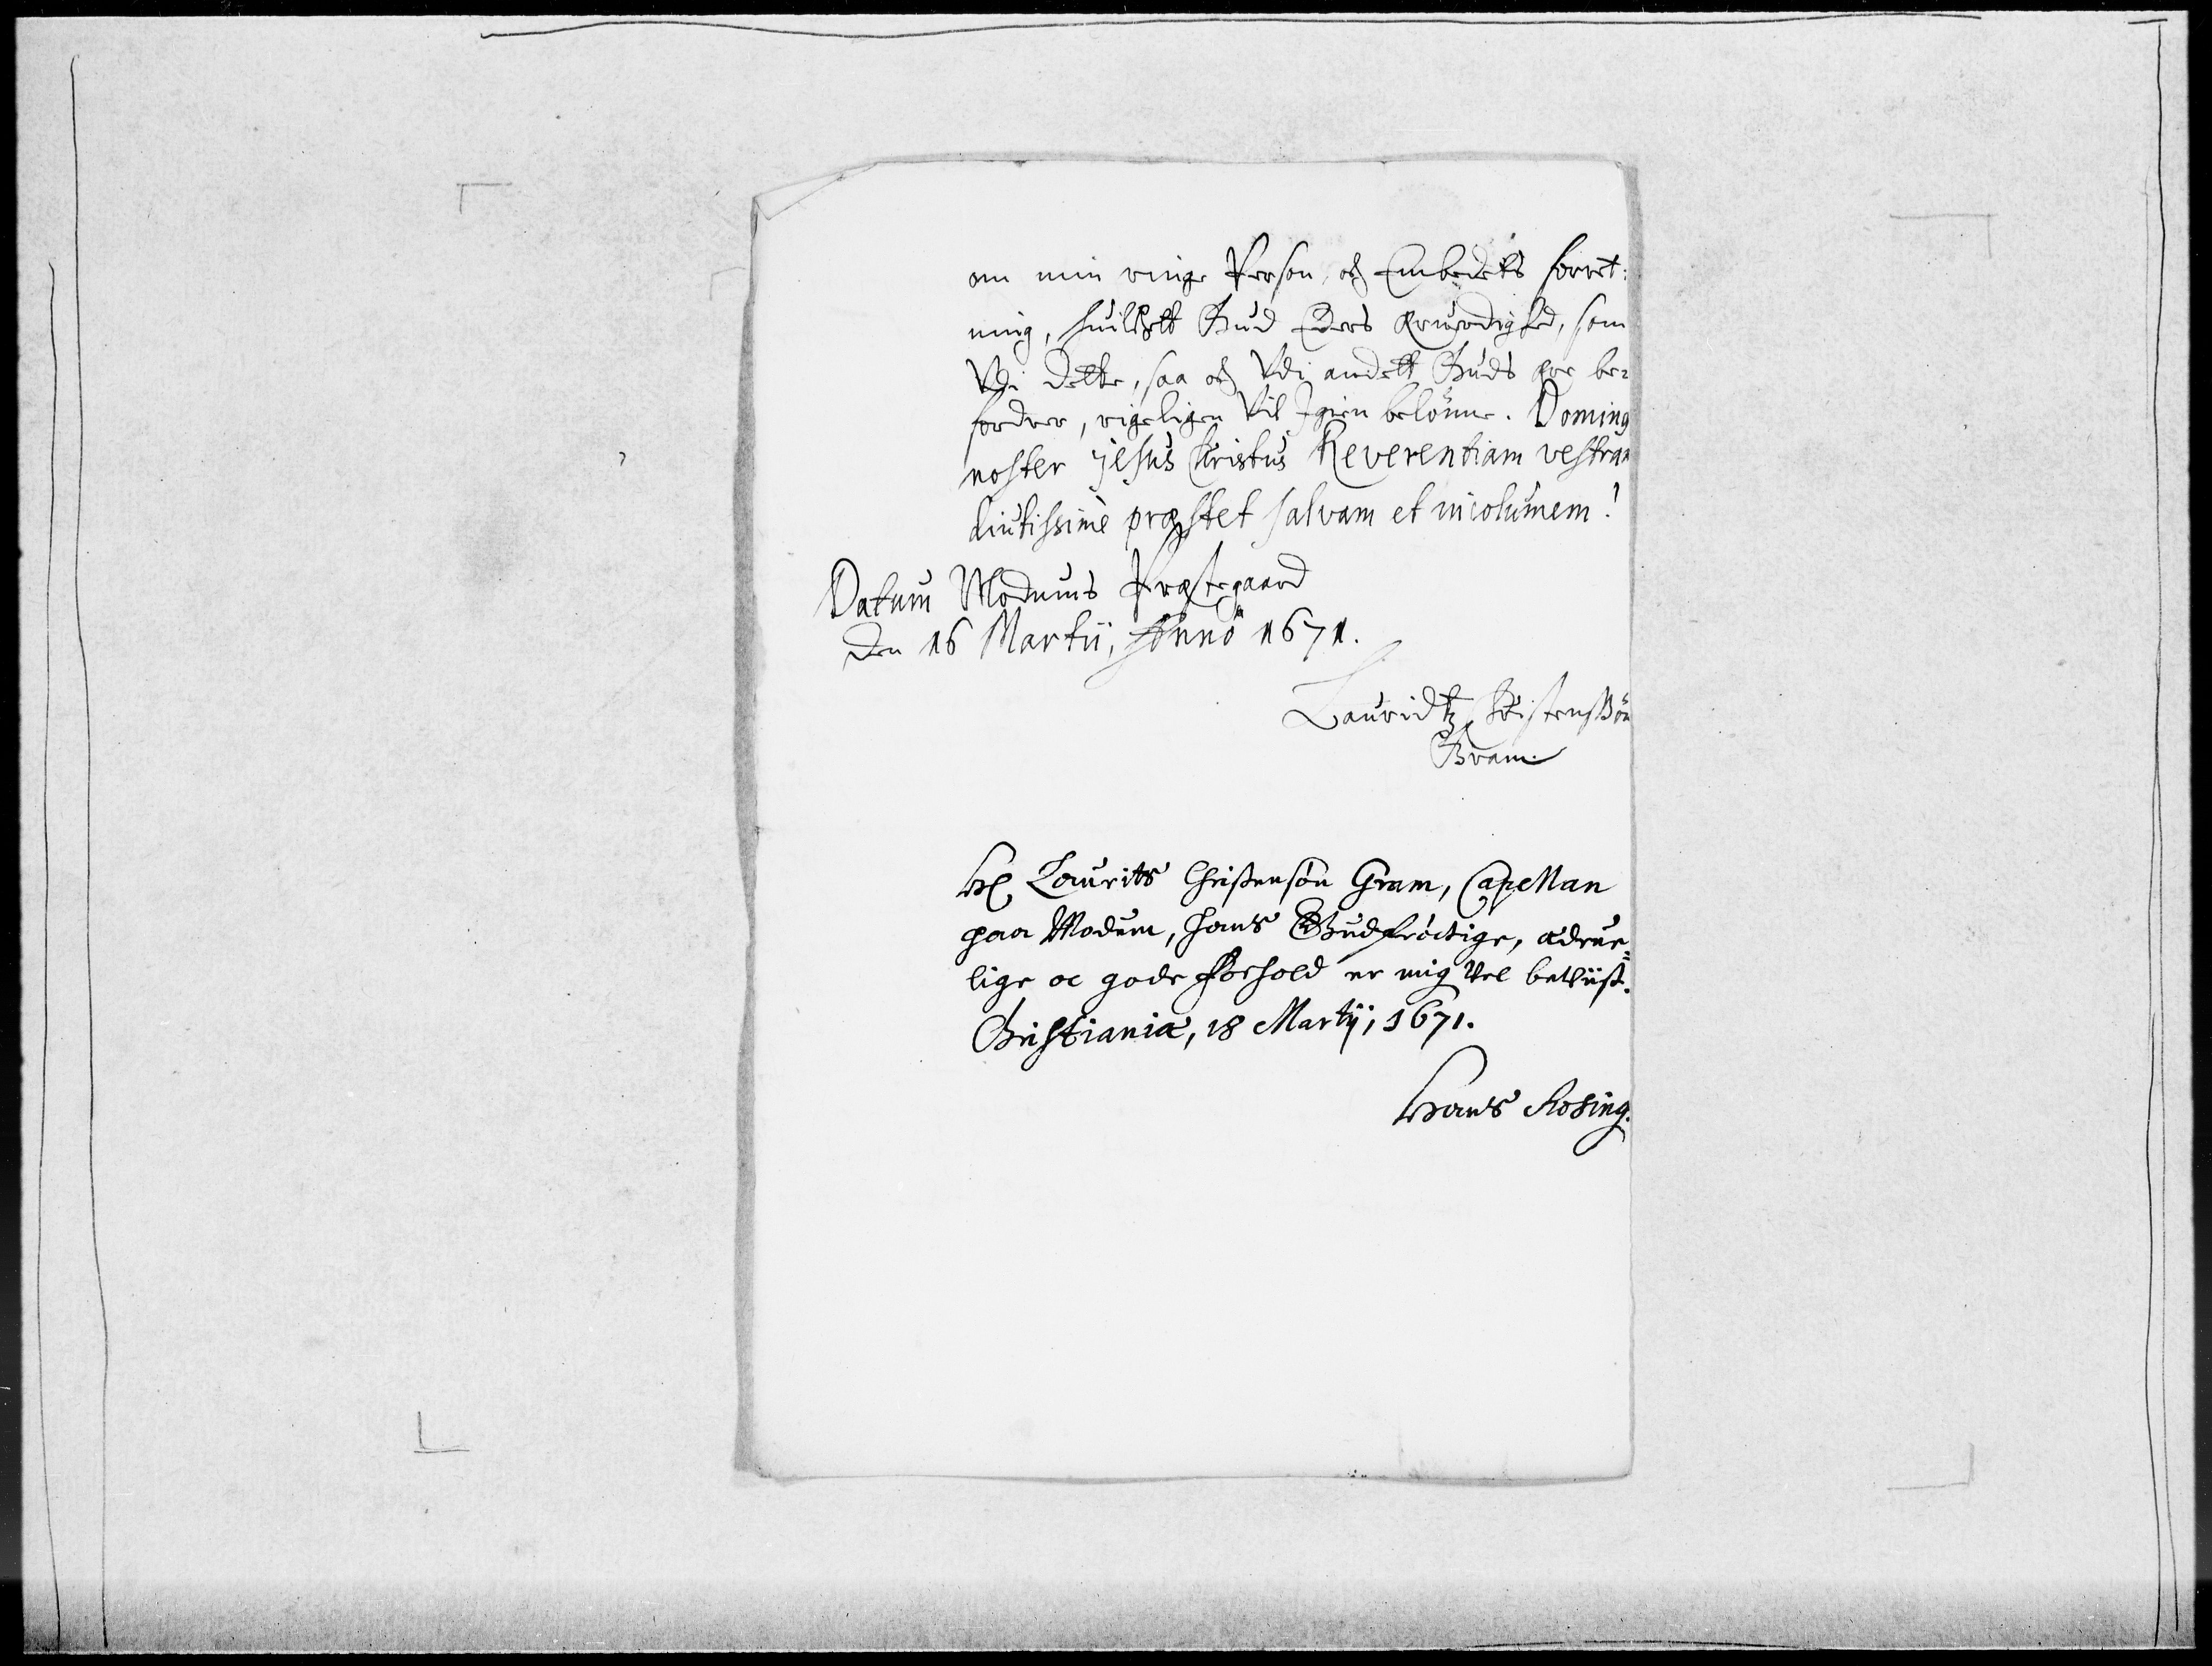 om min ringe Person, och Embedets forret:
ning, huilchett Gud Eders ærværdighed, som
Vdi dette, saa och Vdi andett Guds ære be=
fordrer, rigeligen Vil Igien belönne. Dominus
noster jesus Christus Reverentiam vestram
diutissimè præstet salvam et incolumem!
Datum Modums Præstegaard
den 16 Martii, Anno 1671.
Lauridtz Christensön
Gram.
Hr Laurits Christensøn Gram, Capellan
paa Modum, hans Gudfröctige, ædrue=
lige oc gode forhold er mig vel bevust.
Christianiæ, 18 Martij, 1671.
Hans Rosing.